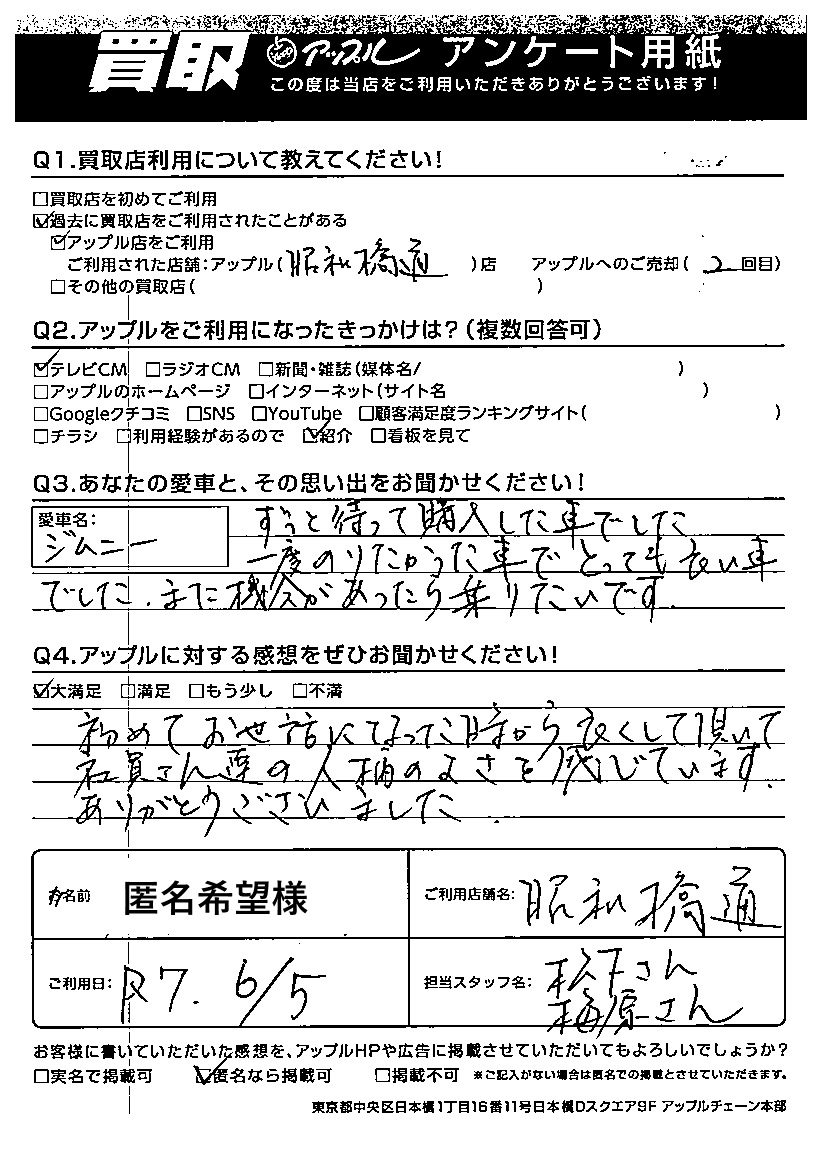 買取 アップル アンケート用紙
この度は当店をご利用いただきありがとうございます!
Q1.買取店利用について教えてください!
□買取店を初めてご利用
☑過去に買取店をご利用されたことがある
☑アップル店をご利用
ご利用された店舗:アップル(昭和橋通)店 アップルへのご売却(2回目)
□その他の買取店( )
Q2.アップルをご利用になったきっかけは?(複数回答可)
☑テレビCM □ラジオCM □新聞・雑誌(媒体名/ )
□アップルのホームページ □インターネット(サイト名 )
□Googleクチコミ □SNS □YouTube □顧客満足度ランキングサイト( )
□チラシ □利用経験があるので ☑紹介 □看板を見て
Q3.あなたの愛車と、その思い出をお聞かせください!
愛車名:
ジムニー
ずっと待って購入した車でした
一度のりたかった車でとっても良い車
でした.また機会があったら乗りたいです.
Q4.アップルに対する感想をぜひお聞かせください!
☑大満足 □満足 □もう少し □不満
初めてお世話になった時から良くして頂いて
社員さん達の人柄のよさを感じています.
ありがとうございました
お名前 匿名希望様
ご利用店舗名: 昭和橋通
ご利用日: R7. 6/5
担当スタッフ名: 松下さん
梅原さん
お客様に書いていただいた感想を、アップルHPや広告に掲載させていただいてもよろしいでしょうか?
□実名で掲載可 ☑匿名なら掲載可 □掲載不可 ※ご記入がない場合は匿名での掲載とさせていただきます。
東京都中央区日本橋1丁目16番11号日本橋Dスクエア9F アップルチェーン本部